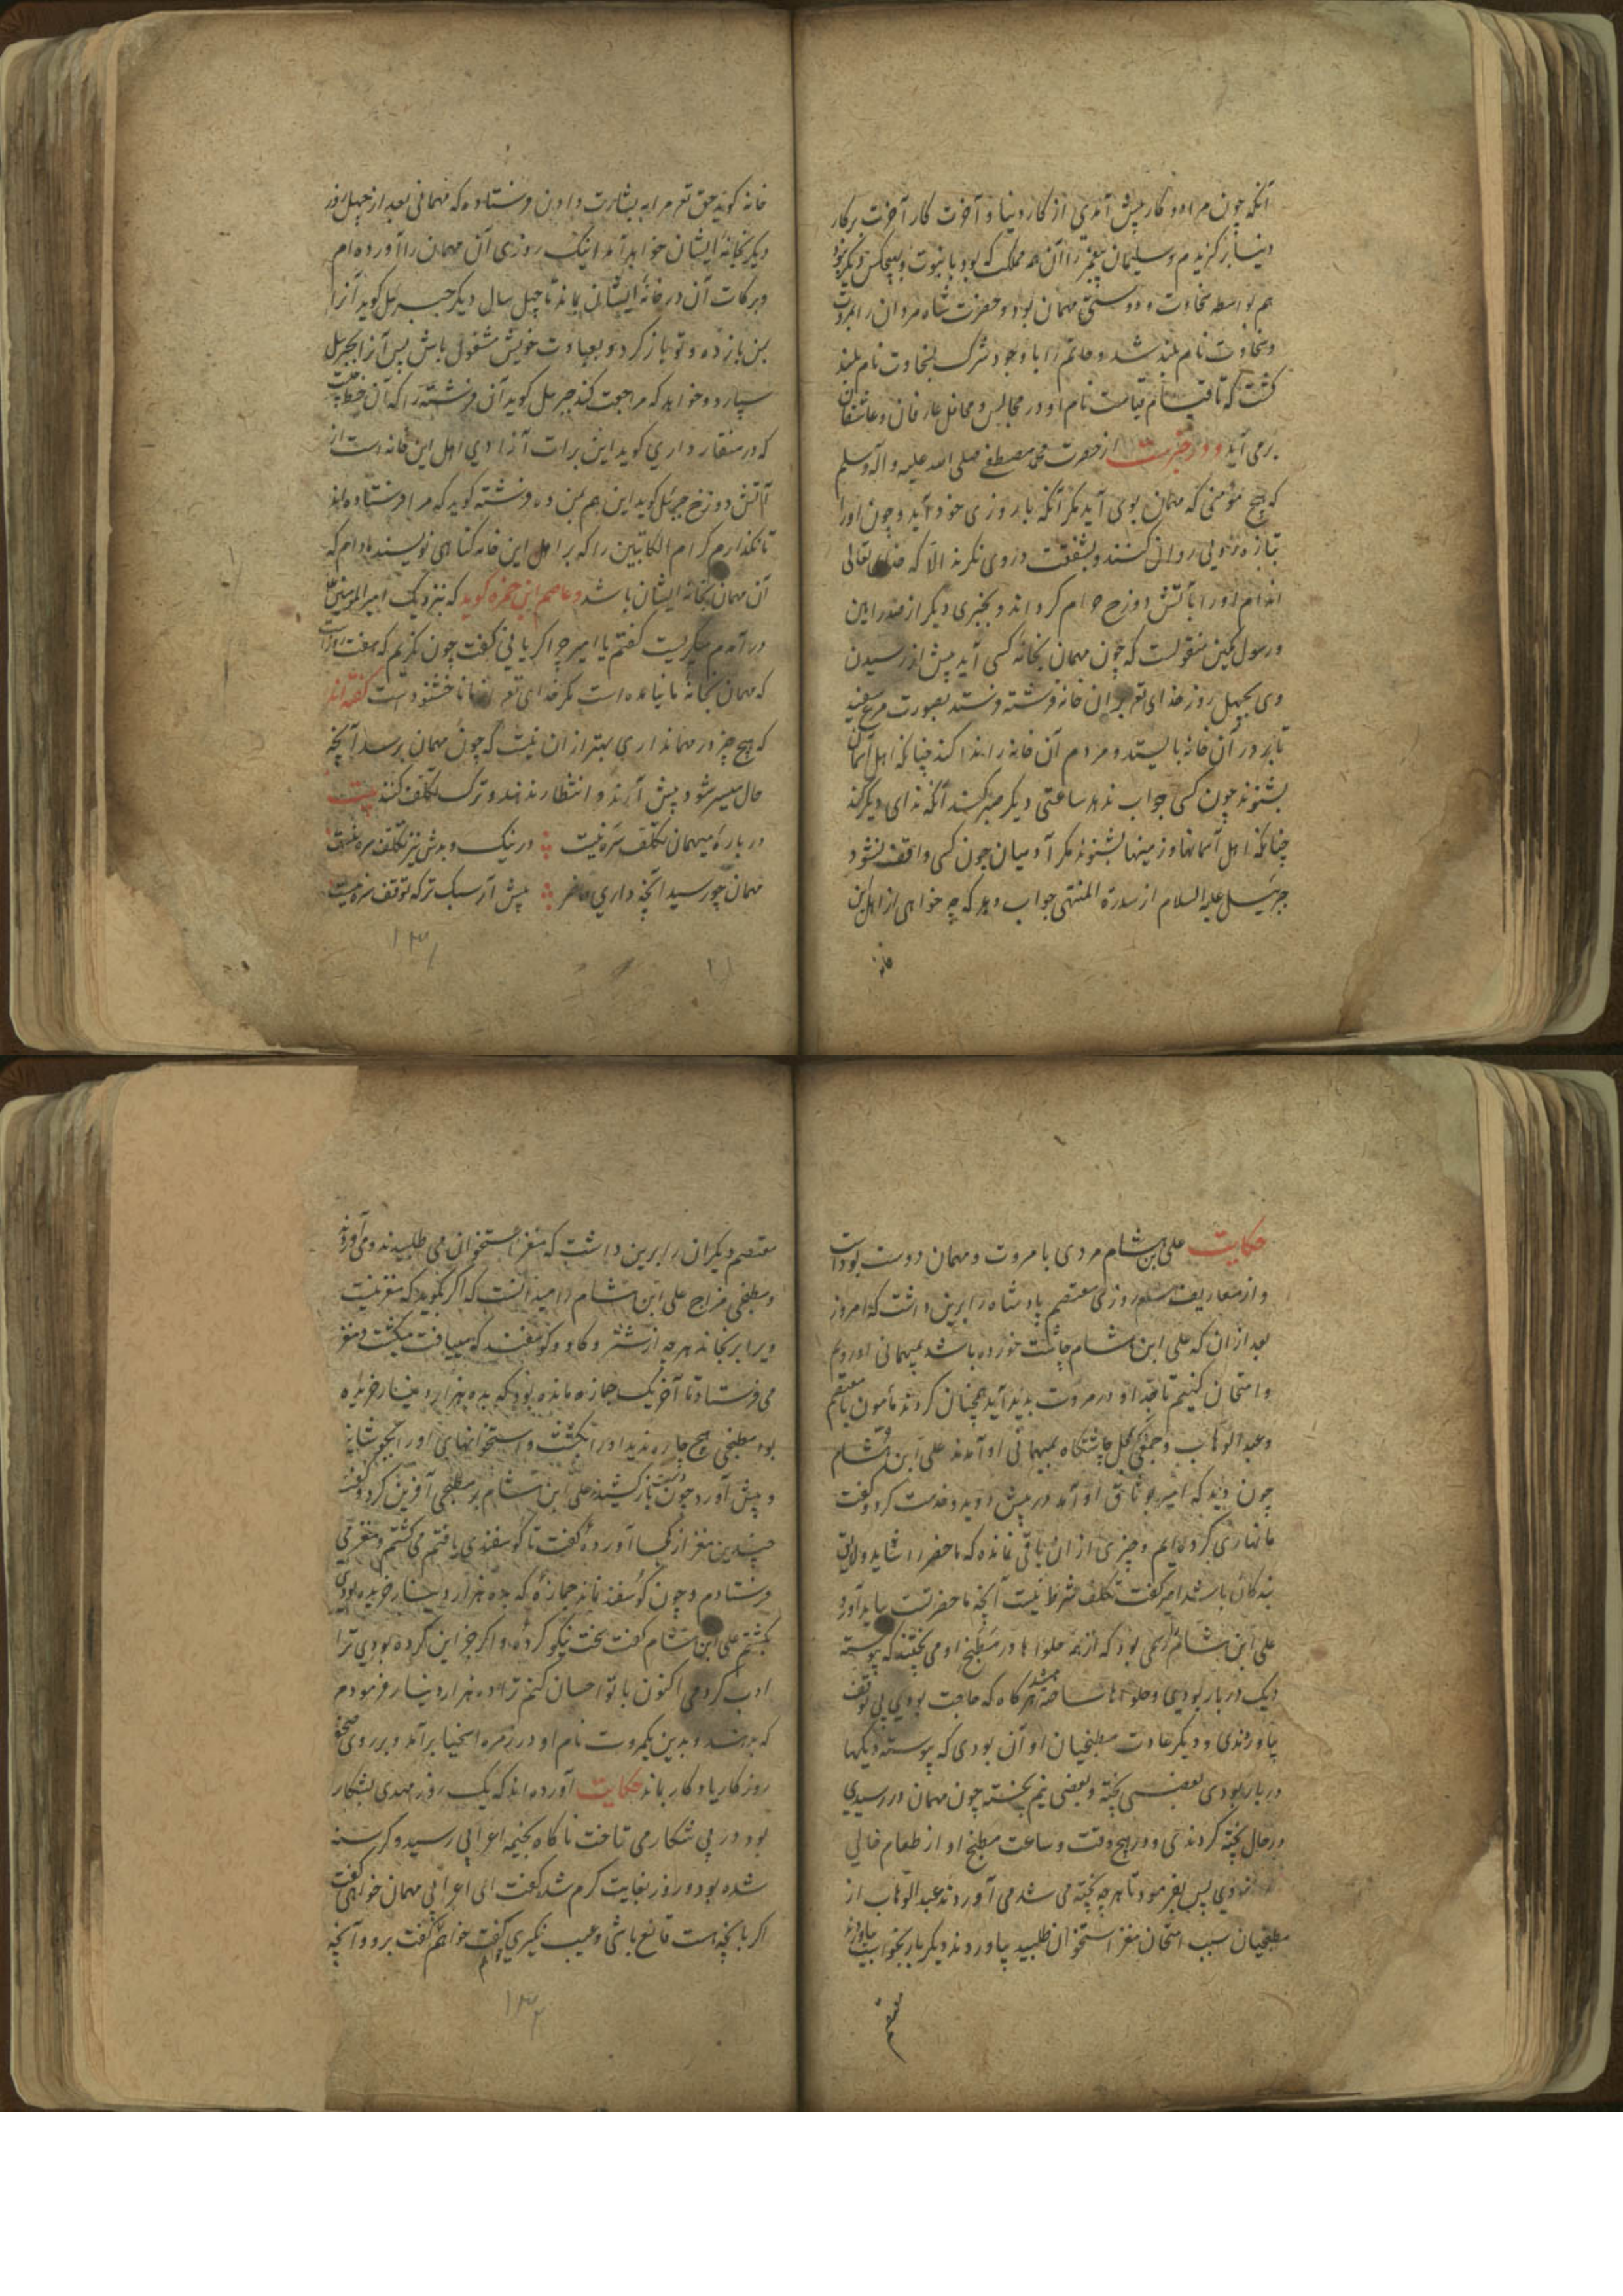 آنکه چون مرا دو کار پیش آمدی از کار دنیا و آخرت کار آخرت بر کار
دنیا برگزیدم و سلیمان پیغمبر را آن همه مملکت که بود با نبوت و هیچکس دیگر نبود
هم بواسطه سخاوت و دوستی مهمان بود و حضرت شاه مردان را بمروت
و سخاوت نام بلند شد و حاتم را با وجود شرک بسخاوت نام بلند
گشت که تا قیام قیامت نام او در مجالس و محافل عارفان و عاشقان
برمی آید و در خبرست از حضرت محمد مصطفی صلی الله علیه و آله وسلم
که هیچ مؤمنی که مهمان بوی آید مگر آنکه با روزی خود آید و چون او را
بتازه رویی روان کنند و بشفقت در وی نگرند الا که خدای تعالی
اندام او را بآتش دوزخ حرام گرداند و بخبری دیگر از صدر امین
و رسول مبین منقولست که چون مهمان بخانه کسی آید پیش از رسیدن
وی بچهل روز خدای تع بر آن خانه فرشته فرستد بصورت مرغ سفید
تا بر در آن خانه بایستد و مردم آن خانه را ندا کند چنانکه اهل آسمان
بشنوند چون کسی جواب ندهد ساعتی دیگر صبر کند آنگه ندای دیگر کند
چنانکه اهل آسمانها و زمینها بشنوند مگر آدمیان چون کسی واقف نشود
جبرئیل علیه السلام از سدرة المنتهی جواب دهد که چه خواهی از اهل این
خانه
خانه گوید حق تع مرا به بشارت دادن فرستاده که مهمانی بعد از چهل روز
دیگر بخانه ایشان خواهد آمد اینک روزی آن مهمان را آورده ام
و برکات آن در خانه ایشان بماند تا چهل سال دیگر جبرئیل گوید آنرا
بمن بازده و تو بازگرد و بعبادت خویش مشغول باش پس آنرا بجبرئیل
سپارد و خواهد که مراجعت کند جبرئیل گوید آن فرشته را که آن خط چیست
که در منقار داری گوید این برات آزادی اهل این خانه است از
آتش دوزخ جبرئیل گوید این هم بمن ده فرشته گوید که مرا فرستاده اند
تا نگذارم کرام الکاتبین را که بر اهل این خانه گناهی نویسند مادام که
آن مهمان بخانه ایشان باشد و عاصم ابن حمزه گوید که نزدیک امیرالمؤمنین علی
درآمدم میگریست گفتم یا امیر چرا گریانی گفت چون نگریم که هفت روز است
که مهمان بخانه ما نیامده است مگر خدای تع از ما ناخشنودست گفته اند
که هیچ چیز در مهمانداری بهتر از آن نیست که چون مهمان برسد آنچه
حال میسر شود پیش آرند و انتظار ندهند و ترک تکلف کنند بیت
در باره میهمان تکلف سره نیست در نیک و بدش نیز تکلف سره نیست
مهمان چو رسید آنچه داری حاضر پیش آر سبک تر که توقف سره نیست
۱۳۱
حکایت علی ابن هشام مردی با مروت و مهمان دوست بوده است
و از معاریف روزی معتصم پادشاه را برین داشت که امروز
بعد از آن که علی ابن هشام چاشت خورده باشد بمیهمانی او رویم
و امتحان کنیم تا چه از او در مروت پدید آید همچنان کردند مأمون با معتصم
و عبدالوهاب و جمعی بچاشتگاه بمیهمانی او آمدند علی ابن هشام
چون دید که امیر بوثاق او آمد در پیش دوید و خدمت کرد و گفت
ما نهاری کرده ایم و چیزی از آن باقی نمانده که ماحضر را شاید و لایق
بندگان باشد امیر گفت تکلف شرط نیست آنچه ماحضر تست بباید آورد
علی ابن هشام را رسمی بود که از همه حلواها در مطبخ او می پختند که پیوسته
دیک در بار بودی و حلواها ساخته هرگاه که حاجت بودی بی توقف
بیاوردندی و دیگر عادت مطبخیان او آن بودی که پیوسته دیگها
در بار بودی بعضی پخته و بعضی نیم پخته چون مهمان در رسیدی
در حال پخته کردندی و در هیچ وقت و ساعت مطبخ او از طعام خالی
نبودی پس بفرمود تا هرچه پخته می شد می آوردند عبدالوهاب از
مطبخیان سبب امتحان مغز استخوان طلبید بیاوردند دیگر بار بخواست بیاوردند
معتصم
معتصم دیگران را برین داشت که مغز استخوان می طلبیدند و می آوردند
و مطبخی مزاج علی ابن هشام را میدانست که اگر بگوید که مغز نیست
ویرا برنجاند هرچه از شتر و گاو و گوسفند که می یافت میکشت و مغز
می فرستاد تا آخر یک جمازه مانده بود که بده هزار دینار خریده
بود مطبخی هیچ چاره ندید او را بکشت و استخوانهای او را بجوشانید
و پیش آورد چون دست باز کشیدند علی ابن هشام بر مطبخی آفرین کرد و گفت
چندین مغز از کجا آورده گفت تا گوسفندی یافتم می کشتم و مغز می
فرستادم و چون گوسفند نماند جمازه که بده هزار دینار خریده بودی
بکشتم علی ابن هشام گفت سخت نیکو کرده و اگر جز این کرده بودی ترا
ادب کردمی اکنون با تو احسان کنم ترا ده هزار دینار فرمودم
که بدهند و بدین یک مروت نام او در زمره اسخیا برآمد و بر روی صحیفه
روزگار یادگار بماند حکایت آورده اند که یک روز مهدی بشکار
بود در پی شکار می تاخت ناگاه بخیمه اعرابی رسید و گرسنه
شده بود و روز بغایت گرم شد گفت ای اعرابی مهمان خواهی گفت
اگر بآنچه هست قانع باشی و عیب نگیری گفت خواهم گفت برو و آنچه
۱۳۲